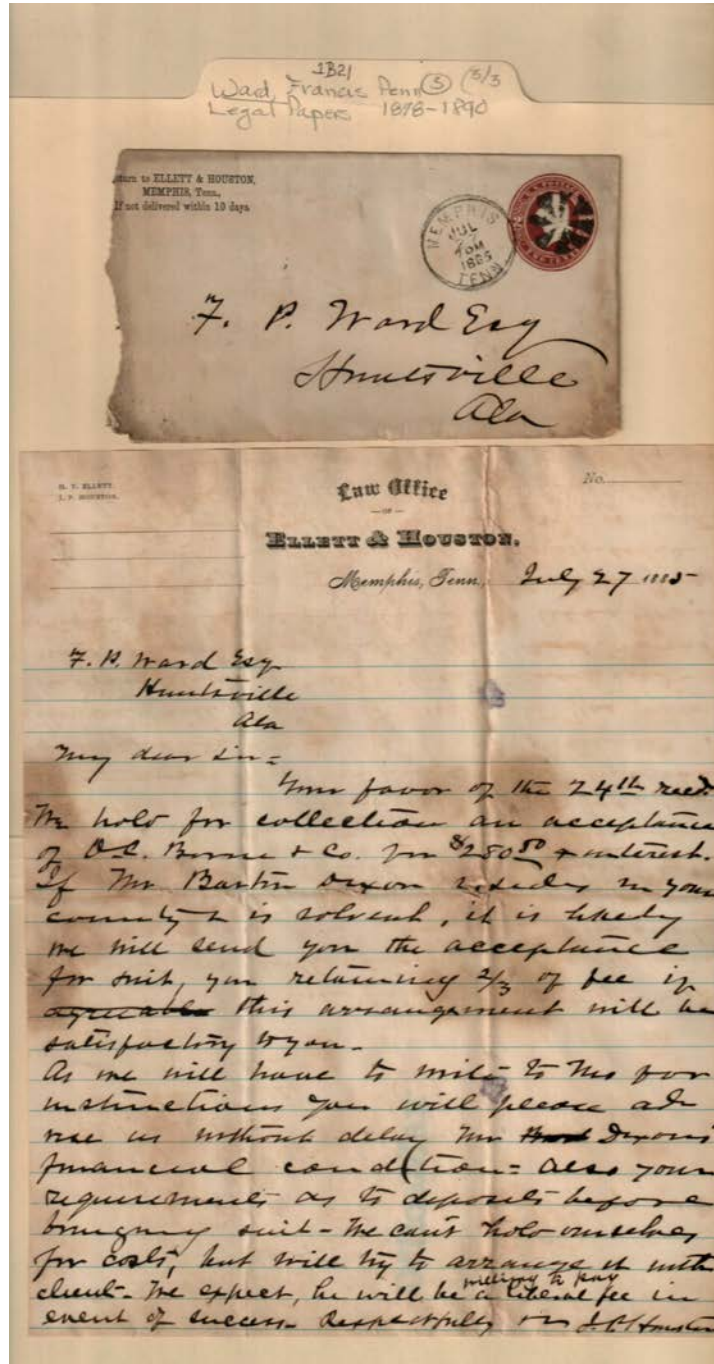 1B21
Ward, Francis Penn ③ (3/3
Legal Papers 1878-1890
turn to ELLETT & HOUSTON,
MEMPHIS, Tenn.,
If not delivered within 10 days
MEMPHIS
JUL
1885
TENN
F. P. Ward Esq
Huntsville
Ala
H. T. ELLETT.
J. P. HOUSTON.
No.
Law Office
—OF—
ELLETT & HOUSTON.
Memphis, Tenn., July 27 1885
F. P. Ward Esq
Huntsville
Ala
My dear Sir=
Your favor of the 24th recd.
We hold for collection an acceptance
of & Co. for $280 50 + interest.
If Mr Dixon resides in your
county & is solvent, it is likely
we will send you the acceptance
for suit, you retaining 2/3 of fee if
agreeable this arrangement will be
satisfactory to you-
As we will have to write to for
instructions you will please ad-
vise us without delay Mr Dixons
financial condition= Also your
requirements as to deposits before
bringing suit- We can't hold ourselves
for costs, but will try to arrange it with
client- We expect, he will be willing to pay a liberal fee in
event of success- Respectfully J. P. Houston